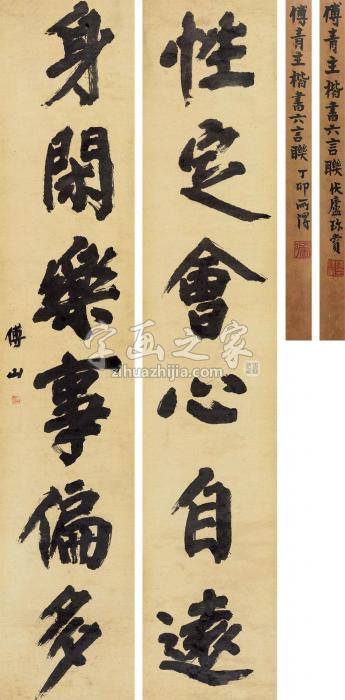 傅青主楷書六言聯 伏廬珍賞
傅青主楷書六言聯 丁卯雨得
性定會心自遠
身閑樂事偏多
傅山
字画之家
zihuazhijia.com